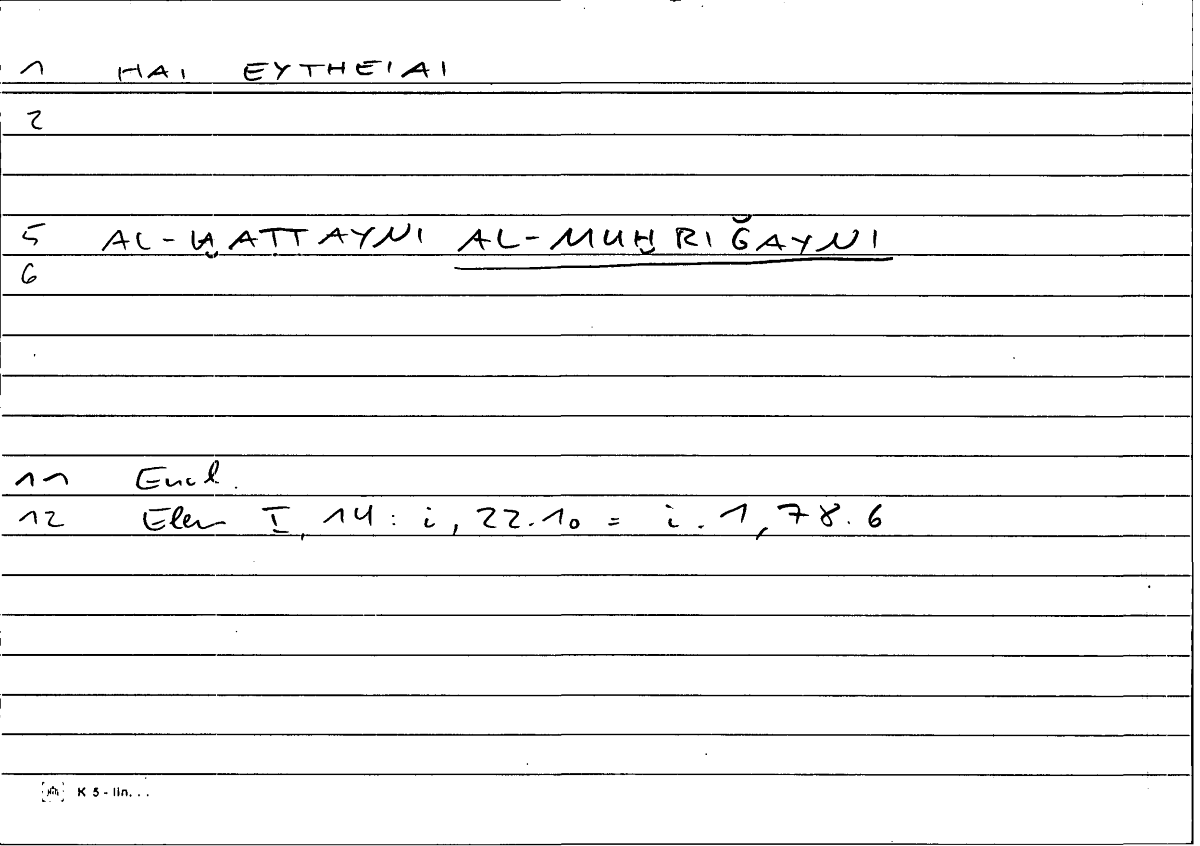 1 HAI EYTHEIAI
2
5 AL-ḪAṬṬAYNI AL-MUḪRIǦAYNI
6
11 Eucl.
12 Elem I, 14 : i, 22.10 = i.1, 78.6
K 5 - lin. . .